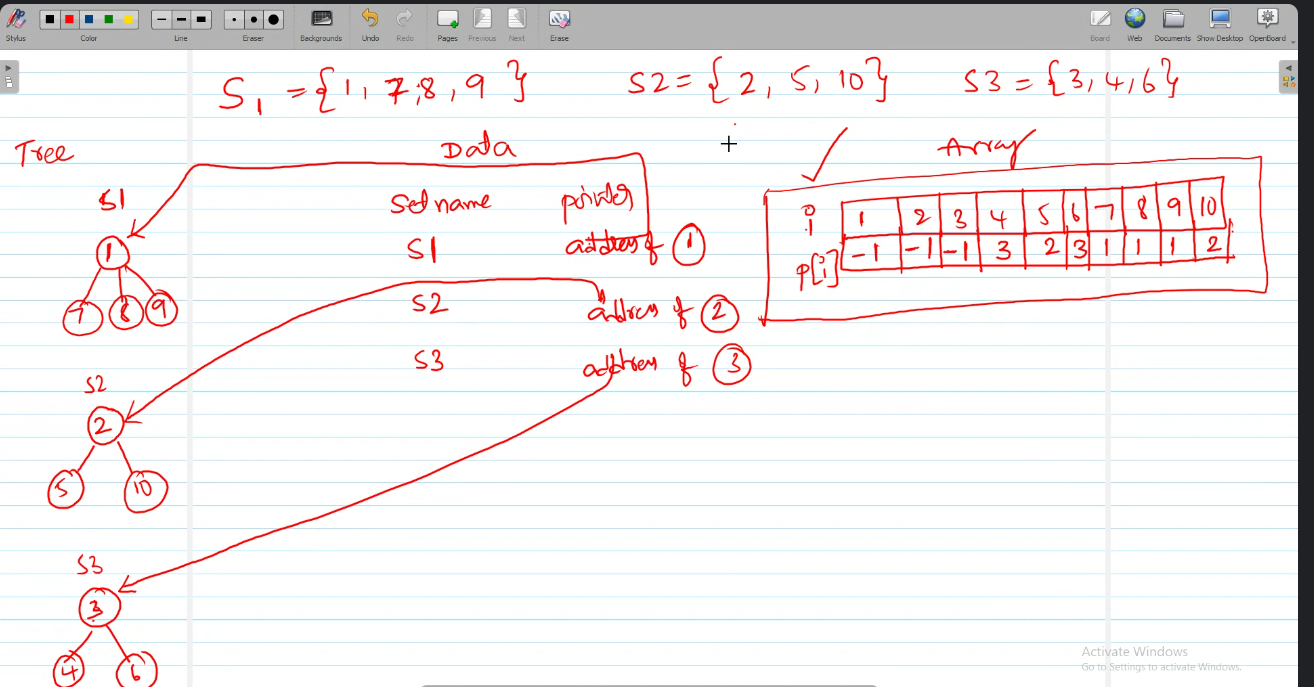 Stylus Color Line Eraser Backgrounds Undo Redo Pages Previous Next Erase Board Web Documents Show Desktop OpenBoard
S1 = {1, 7, 8, 9} S2 = {2, 5, 10} S3 = {3, 4, 6}
Tree Data Array
S1 Set name pointer i 1 2 3 4 5 6 7 8 9 10
1 S1 address of 1 p[i] -1 -1 -1 3 2 3 1 1 1 2
7 8 9 S2 address of 2
S3 address of 3
S2
2
5 10
S3
3
4 6
Activate Windows
Go to Settings to activate Windows.